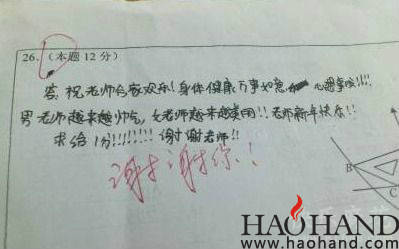 26. (本题 12 分)
答:祝老师合家欢乐!身体健康 万事如意 心想事成!!!!
男老师越来越帅气,女老师越来越美丽!!老师新年快乐!!
求给1分!!!!!!!! 谢谢老师!!
谢谢你!!
B
C
HAOHAND
www.haohand.com